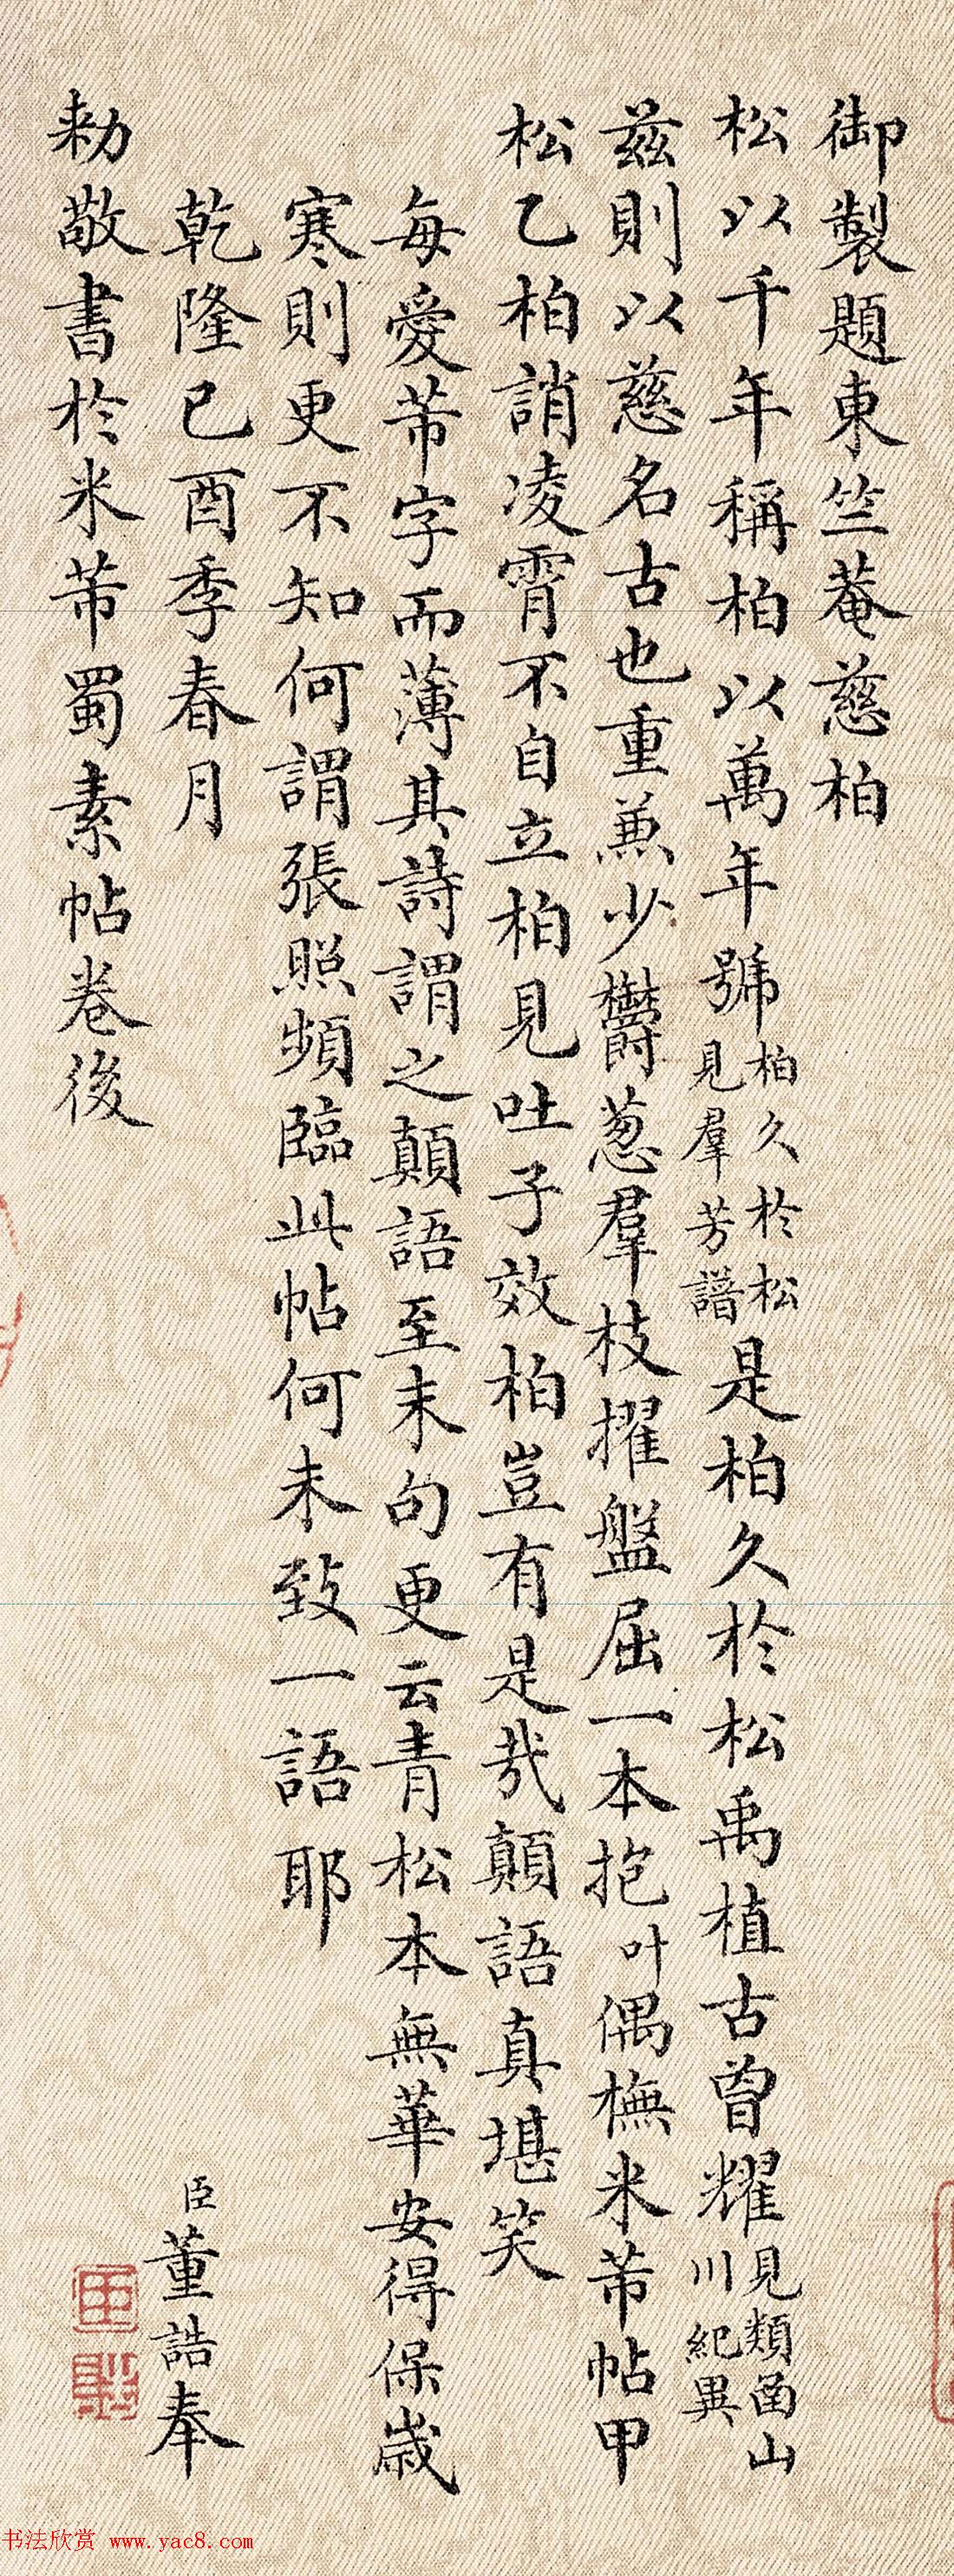 御製題東竺菴慈柏
松以千年稱柏以萬年號柏久於松見羣芳譜是柏久於松禹植古曾耀見類函山川紀異
茲則以慈名古也重兼少欝葱羣枝擢盤屈一本抱叶偶橅米芾帖甲
松乙柏誚凌霄不自立柏見吐子效柏豈有是哉顛語真堪笑
每愛芾字而薄其詩謂之顛語至末句更云青松本無華安得保歲
寒則更不知何謂張照頻臨此帖何未致一語耶
乾隆己酉季春月
臣董誥奉
勅敬書於米芾蜀素帖卷後
书法欣赏 www.yac8.com